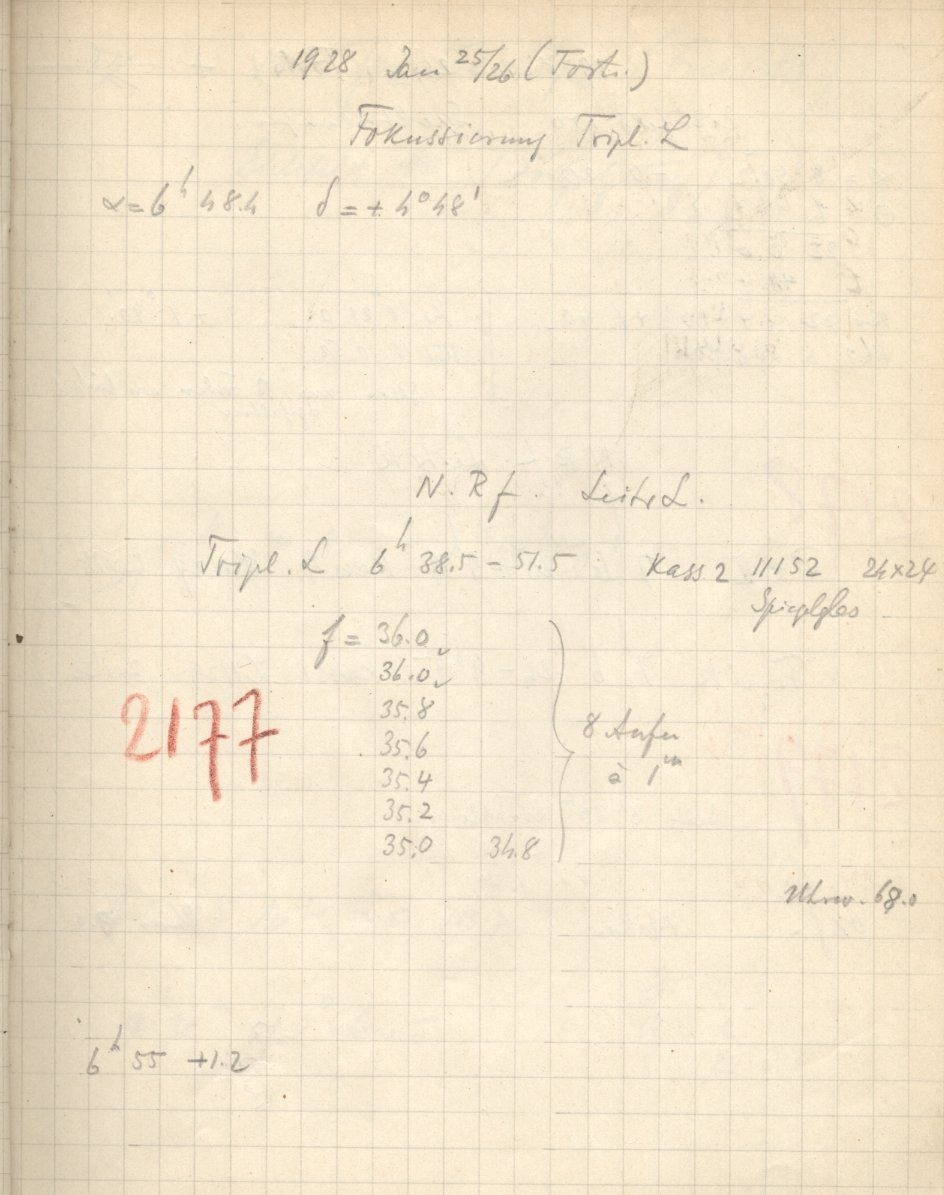 1928 Jan 25/26 (Forts.)
Fokussierung Tripl. L
α = 6h 48.4 δ = + 4° 48'
N. R f. Leits L.
Tripl. L 6h 38.5 – 51.5 Kass 2 11152 24×24
Spiegelglas
f = 36.0
36.0
35.8
35.6
35.4
35.2
35.0 34.8
8 Aufn
à 1m
2177
Uhrw. 68.0
6h 55 +1.2